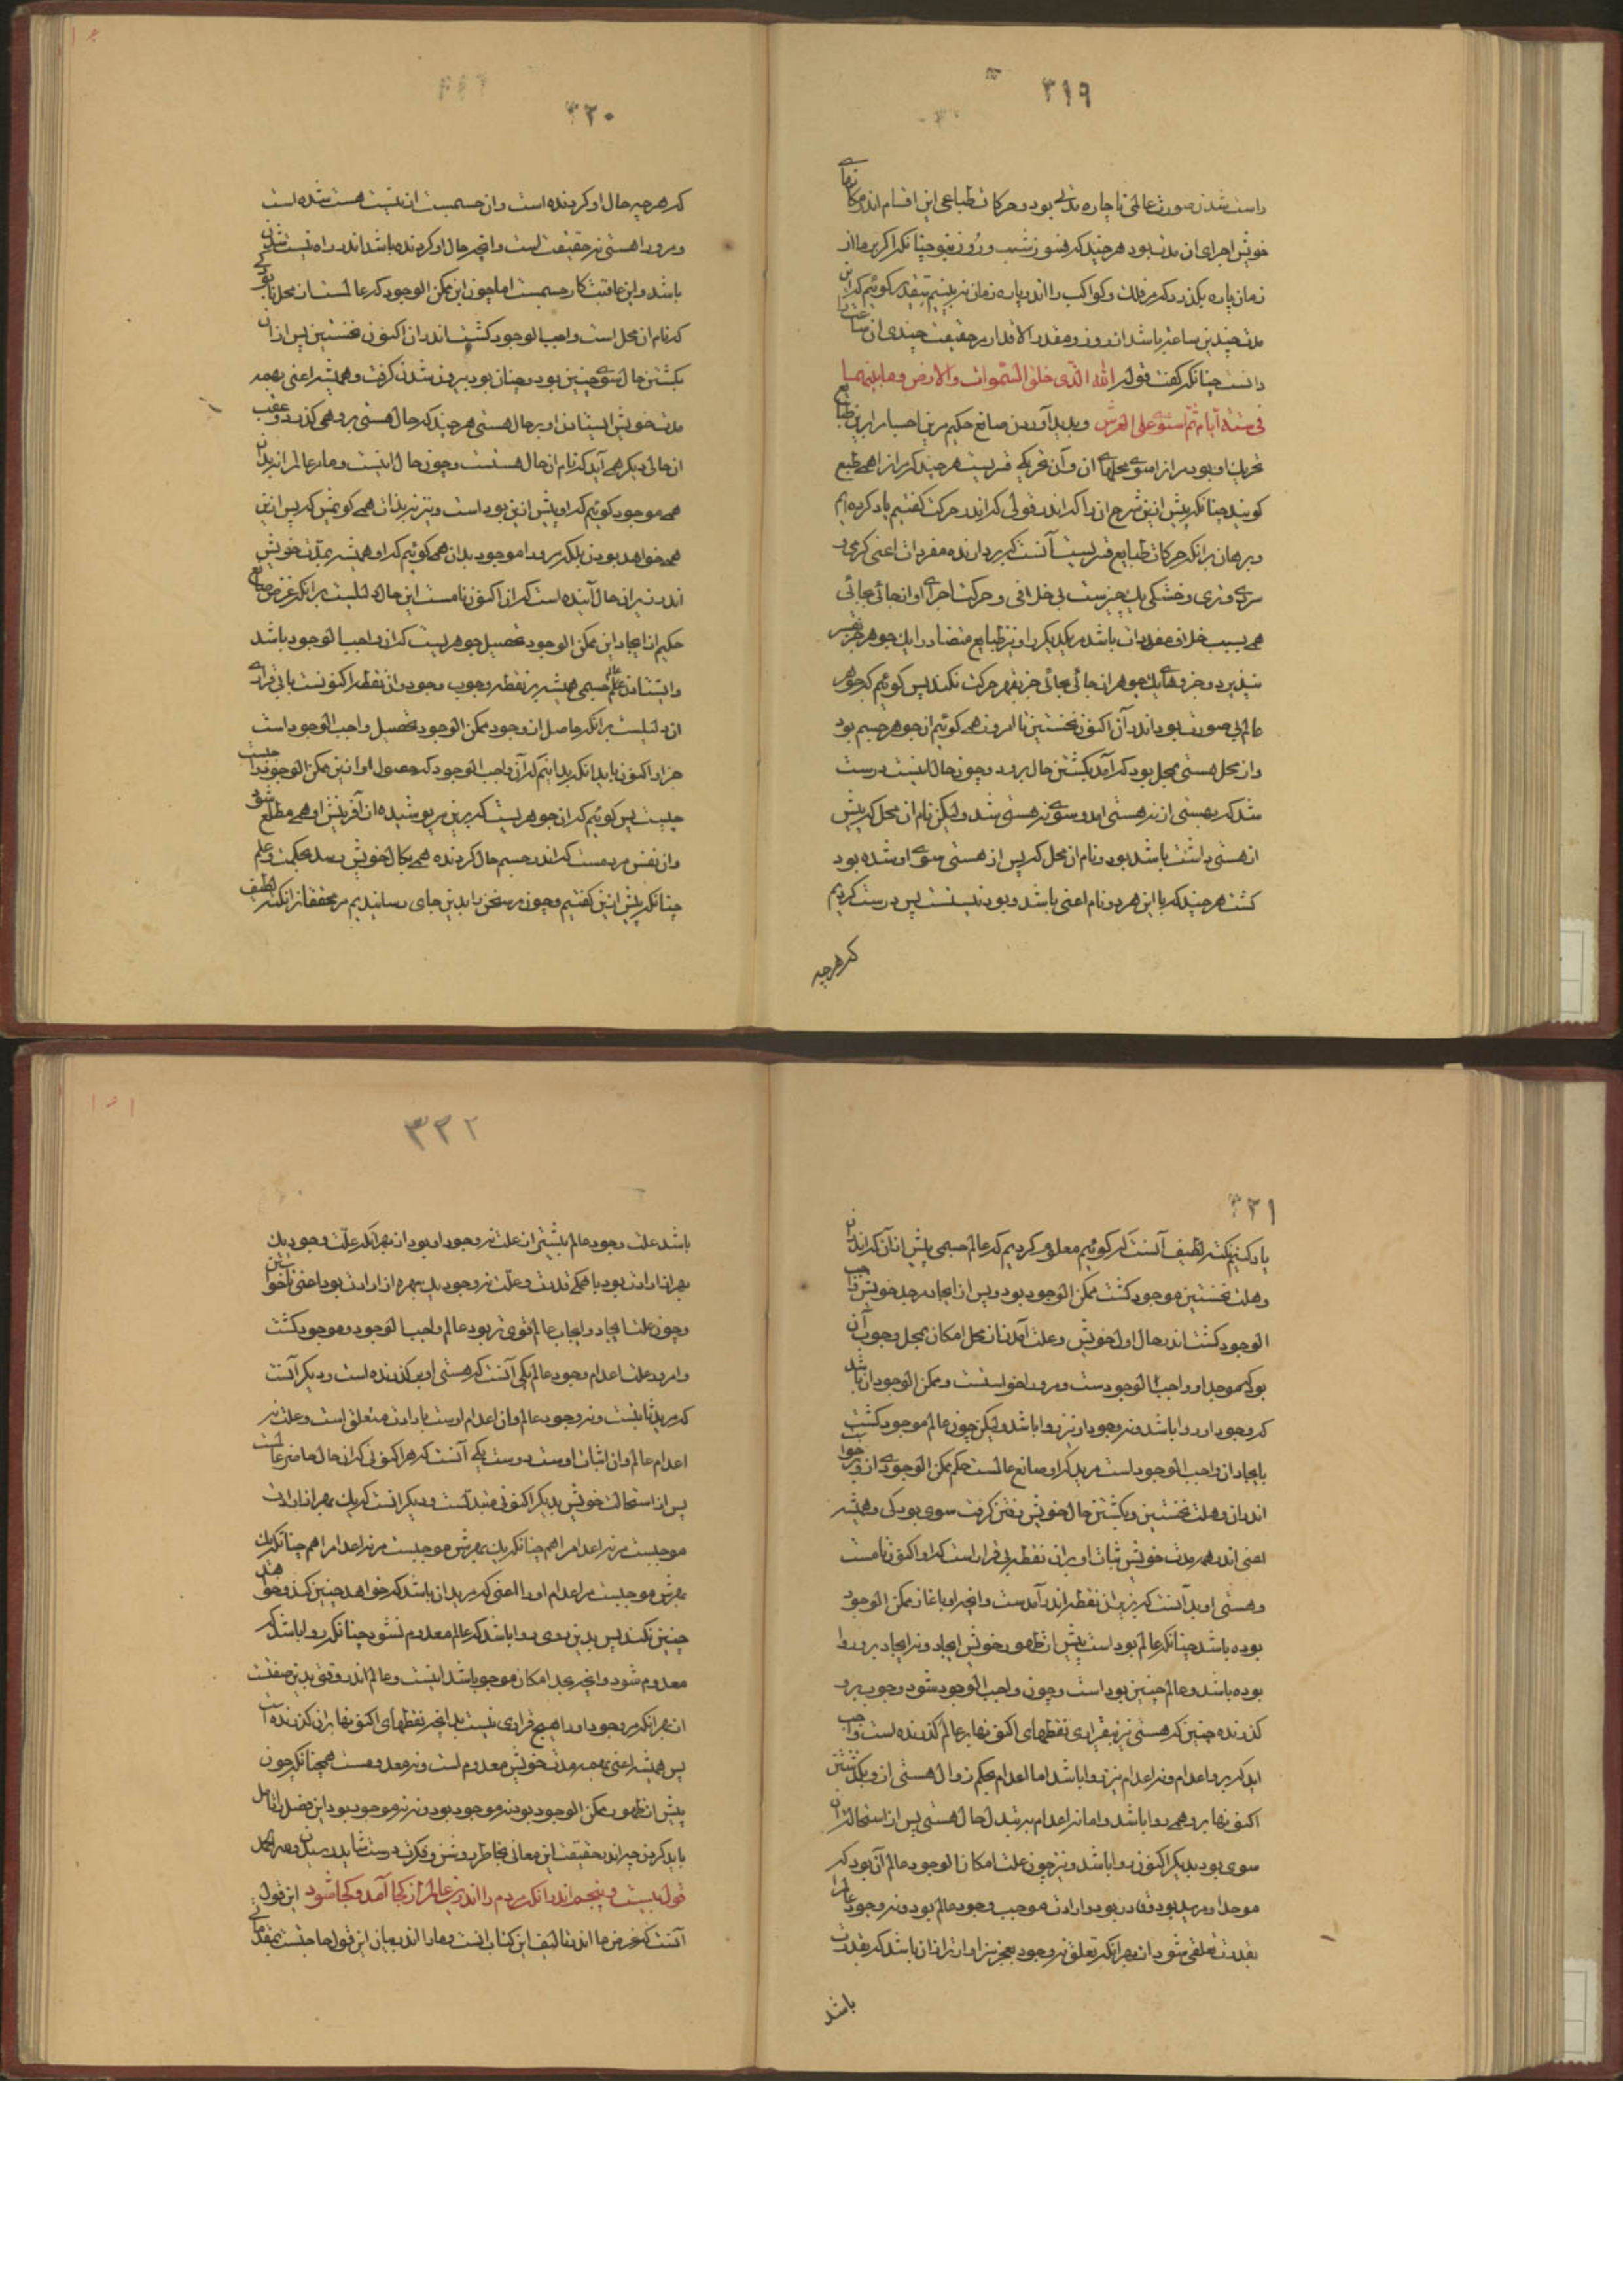 ۳۱۹
راست شدن صورت عالمی ناچاره مدتی بود و حرکات طباعی این اقسام اندر مکانهای
خویش اجرای ان مدت بود هر چند که هنوز شب و روز نبود چنانکه اگر بر ما از
زمان پاره بگذرد که مر فلک و کواکب را اندر پاره زمان نه بینیم بتقدیر گوئیم که این
مدت چندین ساعت باشد از روز و مقدر الاقدار بر حقیقت چندی ان ساعت
دانست چنانکه گفت قوله الله الذی خلق السموات والارض وما بینهما
فی ستة ایام ثم استوی علی العرش و پدید آوردن صانع حکیم مر این احسام را بر این طبایع
تحریک او بود مر انرا سوی محلهای ان و آن تحریکی قسریست هر چند که مر انرا همی طبع
گویند چنانکه پیش ازین شرح ان را که اندر قولی که اندر حرکت گفتیم یاد کرده ایم
و برهان بر انکه حرکات طبایع قسریست آنست که بردارنده مفردات اعنی گرمی و
سردی و تری و خشکی یک چیزست بی خلافی و حرکت اجزای او از جائی بجائی
همی بسبب خلاف مفردات باشد مر یکدیگر را و نیز طبایع متضاد را یک جوهر جز بقسر
نپذیرد و جزوهای یک جوهر از جائی بجائی جز بقهر حرکت نکند پس گوئیم که جوهر
عالم بی صورت بود اندر آن اکنون نخستین تا امروز همی گوئیم ان جوهر جسم بود
و از محل هستی بمحل بود که آمد بگشتن حال برو و چون حال اینست درست
شد که بهستی از نه هستی امد و سوی نه هستی شد ولیکن نام ان محل که پیش
از هستی داشت باشد بود و نام ان محل که پس از هستی سوی او شده بود
گشت هر چند که با این هر دو نام اعنی باشد و بود نیست پس درست کردیم
که هرچه
۳۲۰
که هر چه حال او گردنده است و ان جسمست از نیست هست شده است
و مرو را هستی نه حقیقت است و انچه حال او گردنده باشد اندر راه نیست شدن
باشد و این عاقبت کار جسمست اما چون این ممکن الوجود که عالمست از محل نابودگی
که نام ان محل است واجب الوجود گشت اندر ان اکنون نخستین پس از ان
بگشتن حال سوی چنین بود و چنان بود بیرون شدن گرفت و همیشه اعنی بهمه
مدت خویش ایستادن او بر حال هستی هر چند که حال هستی برو همی گذرد و عقب
ان حالی دیگر همی آید که نام ان حال هستست و چون حال اینست و ما مر عالم را بدان
همی موجود گوئیم که او پیش ازین بود است و نیز نه بدان همی گوئیمش که پس ازین
همی خواهد بودن بلکه مرورا موجود بدان همی گوئیم که او همیشه بمدت خویش
اندر زیر ان حال آینده است که ان اکنون نامست این حال دلیلست بر انکه غرض صانع
حکیم از ایجاد این ممکن الوجود تحصیل جوهریست که ان واجب الوجود باشد
وایستادن عالم جسمی همیشه بر نقطه وجوب وجود و ان نقطه اکنونست با بی قراری
ان دلیلست بر انکه حاصل از وجود ممکن الوجود تحصیل واجب الوجود است
جز او اکنون باید انکه بدانیم که آن واجب الوجود که حصول او ازین ممکن الوجود واجبست
چیست پس گوئیم که ان جوهریست که برین سر پوشیده از آفرینش او همی مطلع شود
و ان نفس مردمست که اندر جسم حال گردنده همی بکمال خویش رسد بحکمت و علم
چنانکه پیش ازین گفتیم و چون مر سخن را بدین جای رسانیدیم مر محققانرا نکته لطیف
۳۲۱
یاد کنیم نکته لطیف آنست که گوئیم معلوم کردیم که عالم جسمی پیش از آن که اندر ان
وهلت نخستین موجود گشت ممکن الوجود بود و پس از ایجاد موجد خویش واجب
الوجود گشت اندر حال اول خویش و علت آمدن از محل امکان بمحل وجوب آن
بود که موجد او واجب الوجودست و مرورا خواستست و ممکن الوجود ان باشد
که وجود او روا باشد و نه وجود او نیز روا باشد ولیکن چون عالم موجود گشت
بایجاد ان واجب الوجود است مرید که او صانع عالمست حکم ممکن الوجودی ازو برخواست
اندر ان وهلت نخستین و بگشتن حال خویش رفتن گرفت سوی بودگی و همیشه
اعنی اندر همه مدت خویش ثبات او بر ان نقطه بی قرار است که او اکنون نامست
و هستی او بد آنست که بزیر ان نقطه اندر آمدست و انچه او باغاز ممکن الوجود
بوده باشد چنانکه عالم بود است پیش از ظهور خویش ایجاد و نه ایجاد برو روا
بوده باشد و عالم چنین بود است و چون واجب الوجود شود وجوب برو
گذرنده چنین که هستی نیز بقراری نقطهای اکنونها بر عالم گذرنده است واجب
اید که برو اعدام و نه اعدام نیز روا باشد اما اعدام بحکم زوال هستی ازو بگذشتن
اکنونها برو همی روا باشد و اما نه اعدام بر تبدل حال هستی پس از استحالت ان
سوی بود بدیگر اکنون روا باشد و نیز چون علت امکان الوجود عالم آن بود که
موجد او مرید بود و قادر بود و ارادت موجب وجود عالم بود و نه وجود عالم را
بقدرت تعلقی نبود از بهر انکه تعلق نه وجود بعجز سزاوارتر از ان باشد که بقدرت
باشد
۳۲۲
باشد علت وجود عالم بیشتر از علت نه وجود او بود از بهر انکه علت وجود یک
بهره از ارادت بود با همگی قدرت و علت نه وجود یک بهره از ارادت بود اعنی ناخواستن
و چون علت ایجاد و ایجاب عالم قوی تر بود عالم واجب الوجود و موجود گشت
و امروز علت اعدام وجود عالم یکی آنست که هستی او بر گذرنده است و دیگر آنست
که مریدتا بنیست و نه وجود عالم و ان اعدام اوست بارادت متعلق است و علت نه
اعدام عالم و ان اثبات اوست دوست یکی آنست که هر اکنونی که ان حال حاضر عالمست
پس از استحالت خویش بدیگر اکنونی متبدلست و دیگر انست که یک بهره از ارادت
موجبست مر نه اعدام را هم چنانکه یک بهرش موجبست مر نه اعدام را هم چنانکه یک
بهرش موجبست مر اعدام او را اعنی که مرید ان باشد که خواهد چنین کند و خواهد
چنین نکند پس بدین روی روا باشد که عالم معدوم نشود چنانکه روا باشد که
معدوم شود و انچه بحد امکان موجود باشد اینست و عالم اندر وقتی بدین صفتست
از بهر انکه مر وجود او را هیچ قراری نیست بدانچه نقطهای اکنونها بر ان گذرنده است
پس همیشه اعنی بهمه مدت خویش معدوم است و نه معدومست همچنانکه چون
پیش از ظهور ممکن الوجود بود نه موجود بود و نه نه موجود بود این فصل را تامل
باید کردن خبر اند بحقیقت این معانی بخاطر روشن و فکرت درست شاید رسیدن وله الحمد
قول بیست و پنجم اندر انکه مردم را اندرین عالم از کجا آمد و کجا شود این قول
آنست که غرض ما اندر تالیف این کتاب انست و ما را اندر بیان این قول حاجتست بمقدماتی